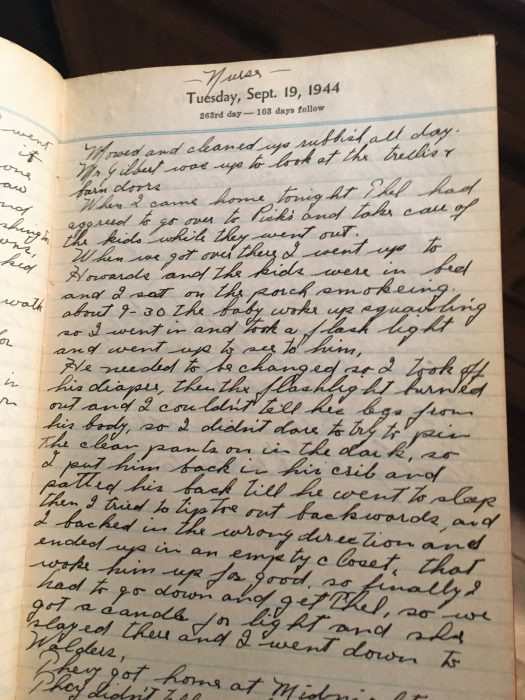 - Nurse -
Tuesday, Sept. 19, 1944
263rd day — 103 days follow
Mowed and cleaned up rubbish all day.
Mr Gilbert was up to look at the trellis &
barn doors
When I came home tonight Phel had
agreed to go over to Pick's and take care of
the kids while they went out.
When we got over there I went up to
Howards and the kids were in bed
and I sat on the porch smokeing.
about 9-30 the baby woke up squawling
so I went in and took a flash light
and went up to see to him,
He needed to be changed so I took off
his diaper, then the flashlight burned
out and I couldn't tell his legs from
his body, so I didn't dare to try to pin
the clean pants on in the dark, so
I put him back in his crib and
patted his back till he went to sleep
then I tried to tip toe out backwords, and
I backed in the wrong direction and
ended up in an empty closet, that
woke him up for good, so finally I
had to go down and get Phel, so we
got a candle for light and she
stayed there and I went down to
Walders,
They got home at Midnight
They didn't